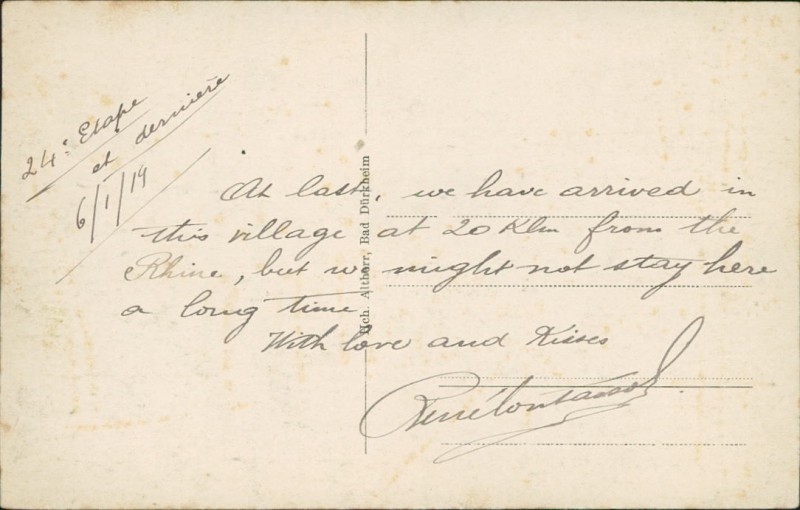 24e Etape
et dernière
6/1/19
At last, we have arrived in
this village at 20 Klm from the
Rhine, but we might not stay here
a long time
With love and Kisses
René
Hch. Altherr, Bad Dürkheim